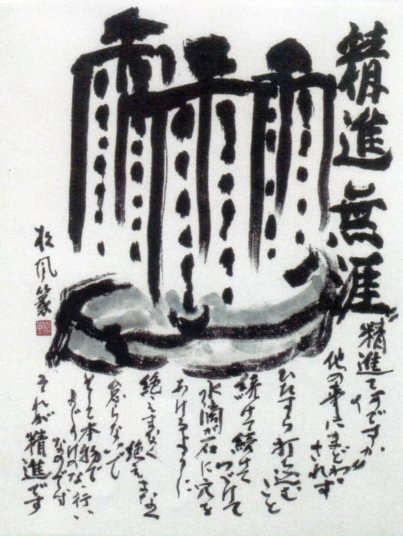 精進無涯
精進てナですか
他の事にまどわ
されず
ひたすら打ち込むこと
続けて続けて
つづけて
水滴石に穴を
あけるように
絶えまなく絶えまなく
怠らないで
そして本物で
なければならない行い
それが精進です
松風篆